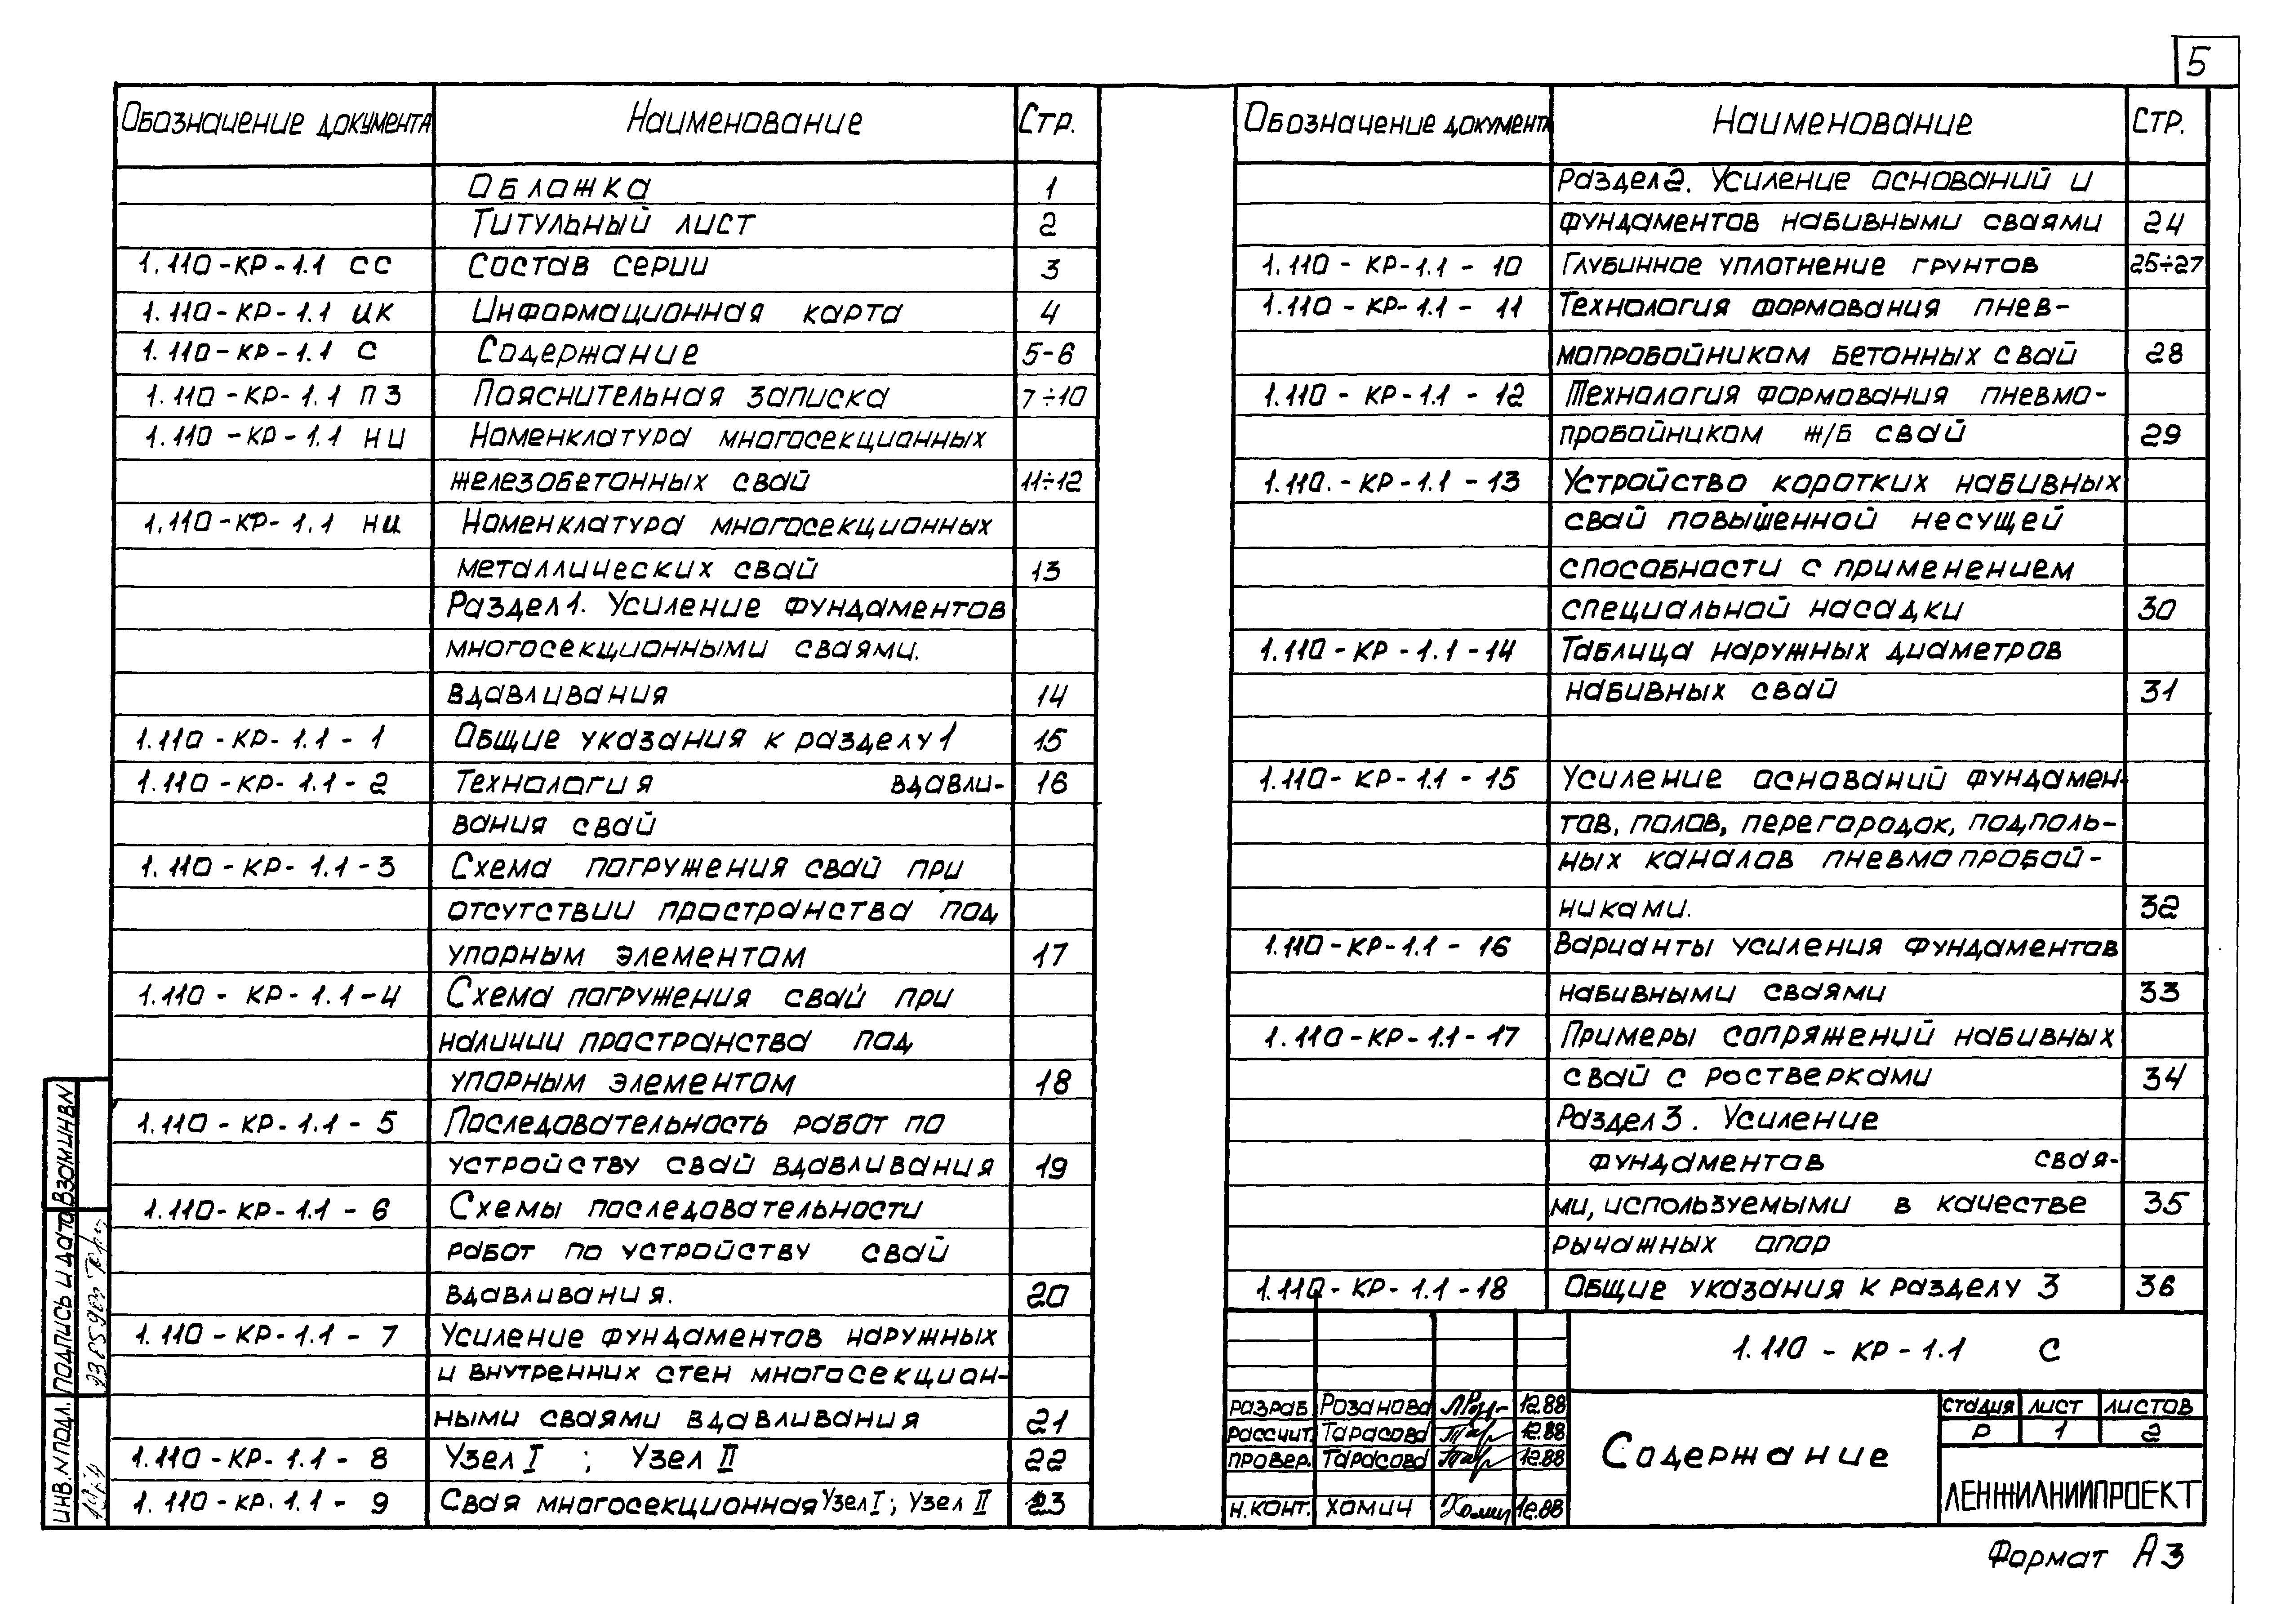 5
Обозначение документа Наименование Стр.
Обложка 1
Титульный лист 2
1.110-КР-1.1 СС Состав серии 3
1.110-КР-1.1 ИК Информационная карта 4
1.110-КР-1.1 С Содержание 5-6
1.110-КР-1.1 ПЗ Пояснительная записка 7÷10
1.110-КР-1.1 НИ Номенклатура многосекционных
железобетонных свай 11÷12
1.110-КР-1.1 НИ Номенклатура многосекционных
металлических свай 13
Раздел 1. Усиление фундаментов
многосекционными сваями.
вдавливания 14
1.110-КР-1.1-1 Общие указания к разделу 1 15
1.110-КР-1.1-2 Технология вдавли- 16
вания свай
1.110-КР-1.1-3 Схема погружения свай при
отсутствии пространства под
упорным элементом 17
1.110-КР-1.1-4 Схема погружения свай при
наличии пространства под
упорным элементом 18
1.110-КР-1.1-5 Последовательность работ по
устройству свай вдавливания 19
1.110-КР-1.1-6 Схемы последовательности
работ по устройству свай
вдавливания. 20
1.110-КР-1.1-7 Усиление фундаментов наружных
и внутренних стен многосекцион-
ными сваями вдавливания 21
1.110-КР-1.1-8 Узел I ; Узел II 22
1.110-КР.1.1-9 Свая многосекционная Узел I ; Узел II 23
Обозначение документа Наименование Стр.
Раздел 2. Усиление оснований и
фундаментов набивными сваями 24
1.110-КР-1.1-10 Глубинное уплотнение грунтов 25÷27
1.110-КР-1.1-11 Технология формования пнев-
мопробойником бетонных свай 28
1.110-КР-1.1-12 Технология формования пневмо-
пробойником ж/б свай 29
1.110.-КР-1.1-13 Устройство коротких набивных
свай повышенной несущей
способности с применением
специальной насадки 30
1.110-КР-1.1-14 Таблица наружных диаметров
набивных свай 31
1.110-КР-1.1-15 Усиление оснований фундамен-
тов, полов, перегородок, подполь-
ных каналов пневмопробой-
никами. 32
1.110-КР-1.1-16 Варианты усиления фундаментов
набивными сваями 33
1.110-КР-1.1-17 Примеры сопряжений набивных
свай с ростверками 34
Раздел 3. Усиление
фундаментов свая-
ми, используемыми в качестве 35
рычажных опор
1.110-КР-1.1-18 Общие указания к разделу 3 36
1.110-КР-1.1 С
разраб. Розанова 12.88
рассчит. Тарасова 12.88
провер. Тарасова 12.88
н.конт. Хомич 12.88
Содержание
стадия лист листов
Р 1 2
ЛЕНЖИЛНИИПРОЕКТ
Формат А3
Инв.N подл. Подпись и дата Взам.инв N